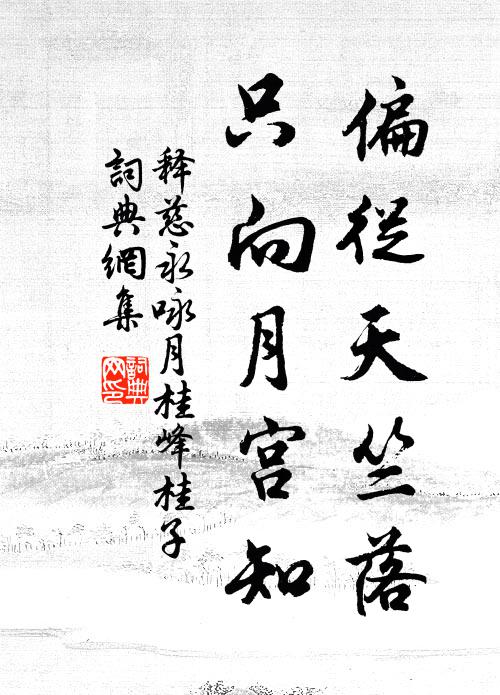 偏從天竺落
只向月宮知
释慈永咏月桂峰桂子
詞典網集
詞典
网印